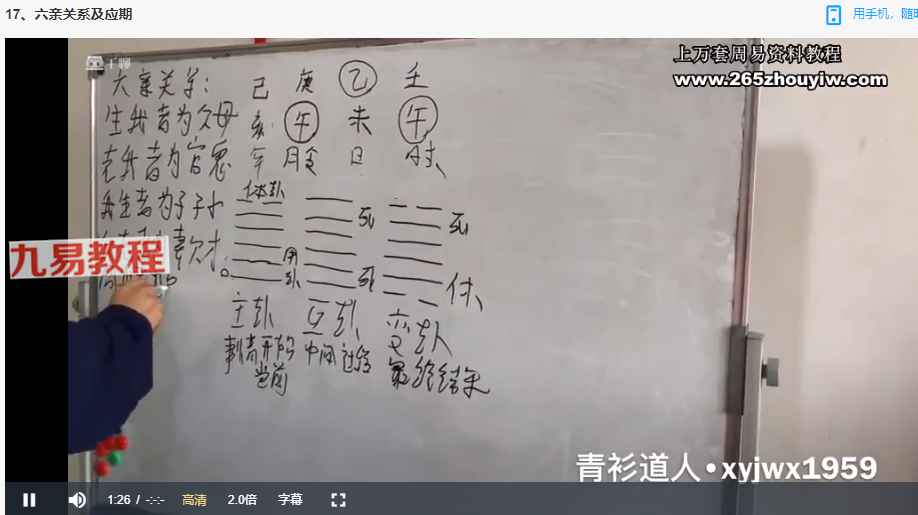 17、六亲关系及应期
用手机，随时
千聊
上万套周易资料教程
www.265zhouyiw.com
六亲关系：
生我者为父母
克我者为官鬼
我生者为子孙
妻财
己 庚 乙 壬
亥 午 未 午
年 月令 日 时
体卦
用卦
死
死
死
休
主卦 互卦 变卦
事情开始 中间过程 最终结果
当前
九易教程
青衫道人•xyjwx1959
1:26 / -:-:- 高清 2.0倍 字幕